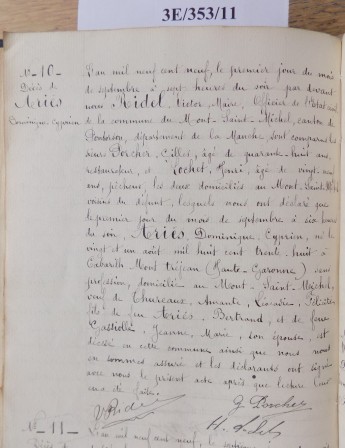 3E/353/11
N° 10
Décès de
Ariès
Dominique, Cyprien
L'an mil neuf cent neuf, le premier jour du mois
de septembre à sept heures du soir, par devant
nous Ridel, Victor, Maire, Officier de l'état civil
de la commune du Mont-Saint-Michel, canton de
Pontorson, département de la Manche, sont comparus les
sieurs Porcher, Gilles, âgé de quarante-huit ans,
restaurateur, et Lochet, Henri, âgé de vingt-neuf
ans, pêcheur, les deux domiciliés au Mont-Saint-Michel
voisins du défunt, lesquels nous ont déclaré que
le premier jour du mois de septembre à six heures
du soir, Ariès Dominique, Cyprien, né le
vingt et un août mil huit cent trente huit à
Cabarith-Mont tréjeau (Haute-Garonne) sans
profession, domicilié au Mont-Saint-Michel,
veuf de Thureaux, Amante, Léocadie, Félicité
fils de feu Ariès, Bertrand, et de feue
Castiolle Jeanne, Marie, son épouse, est
décédé en cette commune ainsi que nous nous
en sommes assuré et les déclarants ont signé
avec nous le présent acte après que lecture leur
en a été faite.
V Ridel
G Porcher
N° 11
L'an mil neuf cent neuf, le